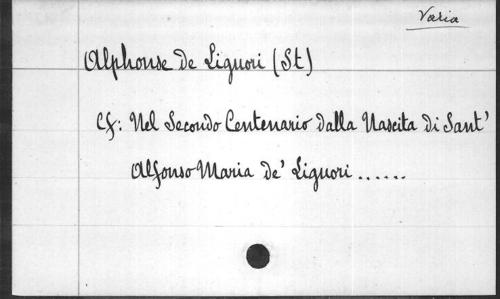 Varia
Alphonse de Liguori (St)
Cf: Nel Secondo Centenario dalla Nascita di Sant'
Alfonso Maria de' Liguori ......